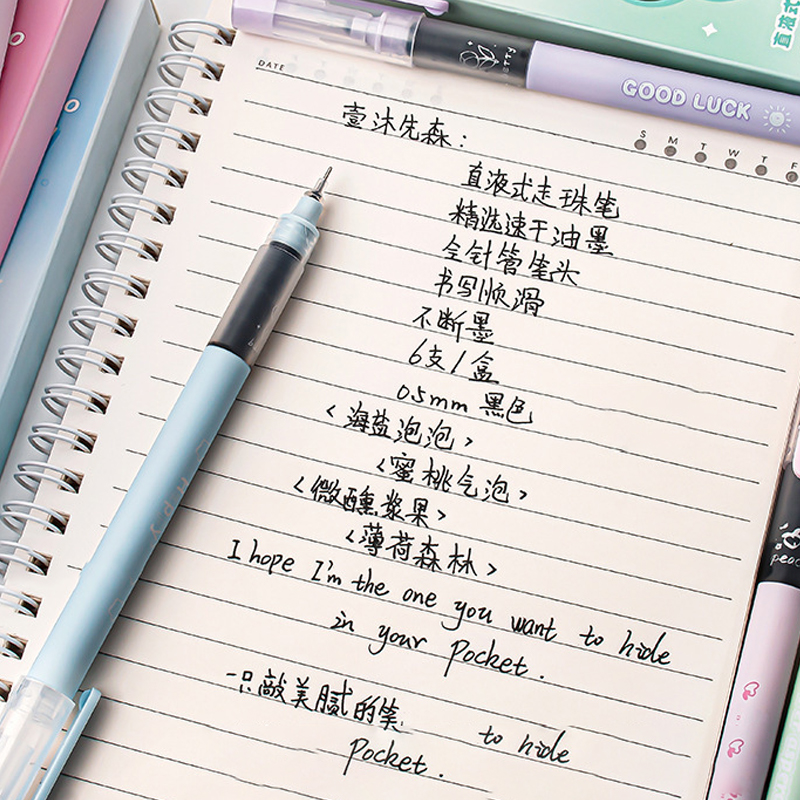 GOOD LUCK
直液式
DATE
S M T W T F
壹沐先森：
直液式走珠笔
精选速干油墨
全针管笔头
书写顺滑
不断墨
6支1盒
0.5mm 黑色
<海盐泡泡>
<蜜桃气泡>
<微醺浆果>
<薄荷森林>
I hope I'm the one you want to hide
in your pocket.
一只敲美腻的笔
to hide
pocket.
peac